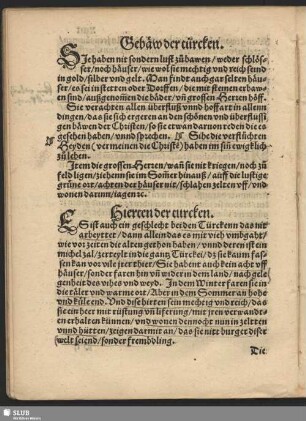 Gebäw der türcken.
Sie haben nit sondern lust zů bawen / weder schlös-
ser / noch häuser / wie wol sie mechtig vnd reich seind
in gold / silber vnd gelt. Man findt auch gar selten häu-
ser / es sei in stetten oder Dorffen / die mit steinen erbaw-
en sind / außgenomen die båder / vñ grossen Herren höff.
Sie verachten allen überfluß vnnd hoffart in allen
dingen / das sie sich ergeren an den schönen vnd überflüssi
gen båwen der Christen / so sie etwan daruon reden die es
gesehen haben / vnnd sprechen. Sihe die verflůchten
Heyden (vermeinen die Christē) haben im siñ ewigklich
zů leben.
Item die grossen Herren / wañ sie nit kriegen / noch zů
feld ligen / ziehenn sie im Som̄er hinauß / auff die lustige
grůne ort / achten der häuser nit / schlahen zelten vff / vnd
wonen darunn /
Hierten der türcken.
Es ist auch ein geschlecht bei den Türckenn das nit
arbeyttet / dann allein das es mit vieh vmbgaht /
wie vor zeiten die alten gethon haben / vnnd deren ist ein
michel zal / zerteylt in die gantz Türckei / das sie kaum fas-
sen kan vor vile jrer thier / Sie haben auch kein acht vff
häuser / sonder faren hin vñ wider in dem land / nach gele
genheit des vihes vnd weyd. In dem Winter faren sie in
die täler vnd warme ort / Aber in dem Sommer an hohe
vnd kůle end. Vnd dise hirten sein mechtig vnd reich / das
sie ein heer mit rüstung vñ liferung / mit jren verwandt-
en erhalten künnen / vnd wonen dennocht nun in zelten
vnnd hütten / zeigen darmit an / das sie nit burger diser
welt seiend / sonder frembdling.
Die
SLUB